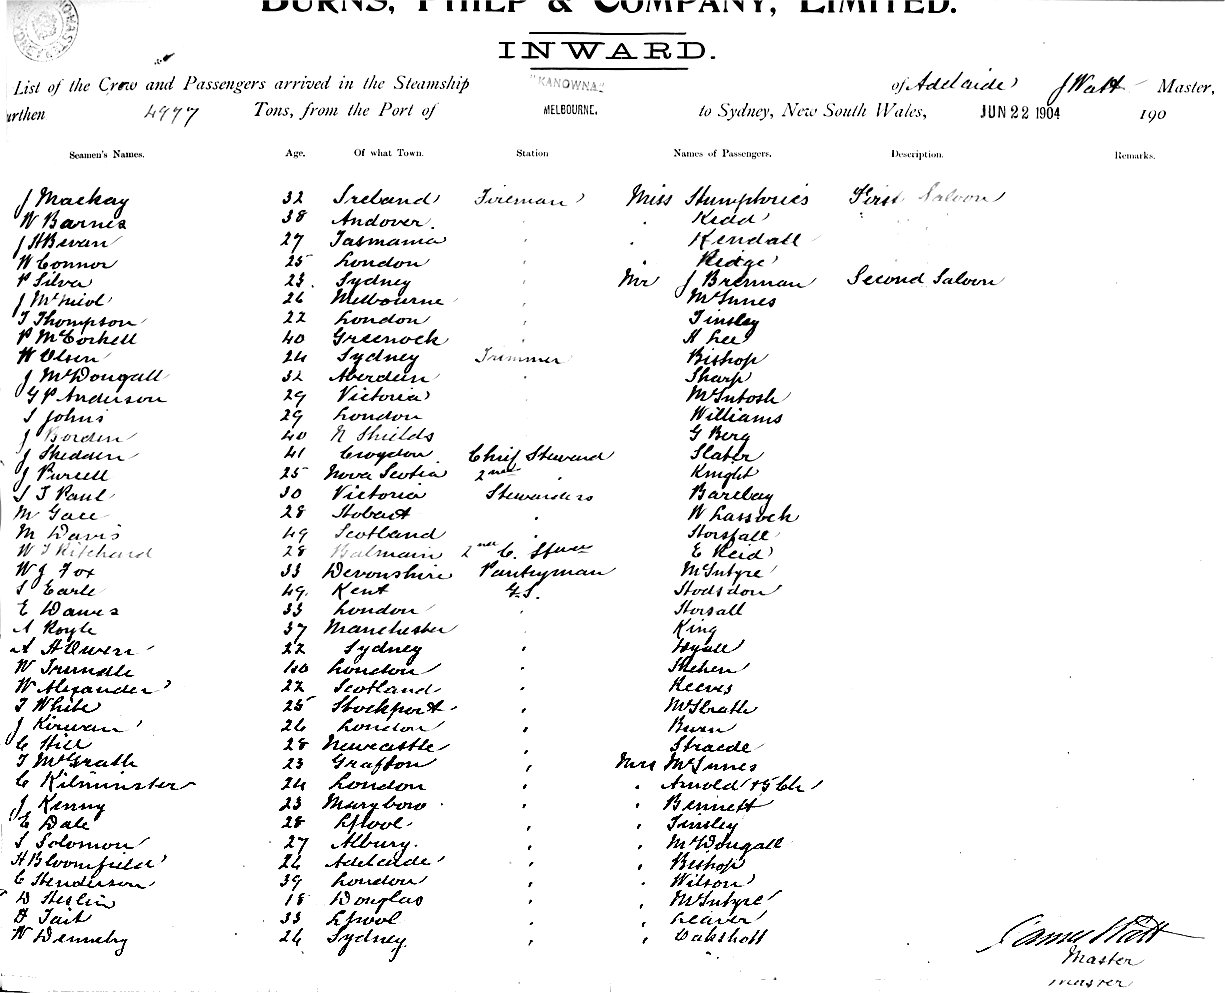 BURNS, PHILP & COMPANY, LIMITED.
INWARD.
List of the Crew and Passengers arrived in the Steamship "KANOWNA" of Adelaide J Watt Master,
urthen 4977 Tons, from the Port of MELBOURNE. to Sydney, New South Wales, JUN 22 1904 190
Seamen's Names. Age. Of what Town. Station Names of Passengers. Description. Remarks.
J Mackay 32 Ireland Fireman Miss Humphries First Saloon
W Barnes 38 Andover. " Kidd
J H Bevan 27 Tasmania " Kendall
W Connor 25 London " Ridge
P Silva 23. Sydney " Mr J Brennan Second Saloon
J McNicol 26 Melbourne " McInnes
T Thompson 22 London " Tinsley
P McCorkell 40 Greenock " H Lee
W Olsen 24 Sydney Trimmer Bishop
J McDougall 32 Aberdeen " Sharp
G P Anderson 29 Victoria " McIntosh
S Johns 29 London " Williams
J Borden 40 N Shields G Berg
J Shedden 41 Croydon Chief Steward Slater
J Purcell 25 Nova Scotia 2nd " Knight
S T Paul 30 Victoria Stewardess Barclay
M Gace 28 Hobart " W Lassock
M Davis 49 Scotland " Horsfall
W T Ritchard 28 Balmain 2nd C. E Reid
W J Fox 33 Devonshire Pantryman McIntyre
S Earle 49 Kent G.S. Hodsdon
E Dawes 33 London " Horsall
A Royle 37 Manchester " King
A H Owen 22 Sydney " Lyall
W Trundle 40 London "
W Alexander 22 Scotland " Reeves
T White 25 Stockport " McGrath
J Kirwan 26 London "
C Hill 28 Newcastle " Straede
T McGrath 23 Grafton " Mrs McInnes
C Kilminster 24 London " " Arnold & 5 Ch
J Kenny 23 Maryboro " " Bennett
E Dale 28 L'pool " " Tinsley
S Solomon 27 Albury. " " McDougall
H Bloomfield 26 Adelaide " " Bishop
C Henderson 39 London " " Wilson
D Heslin 18 Douglas " " McIntyre
D Tait 33 L'pool " " Leaver
W Dennehy 24 Sydney " " Oakshott
James Watt
Master
Master